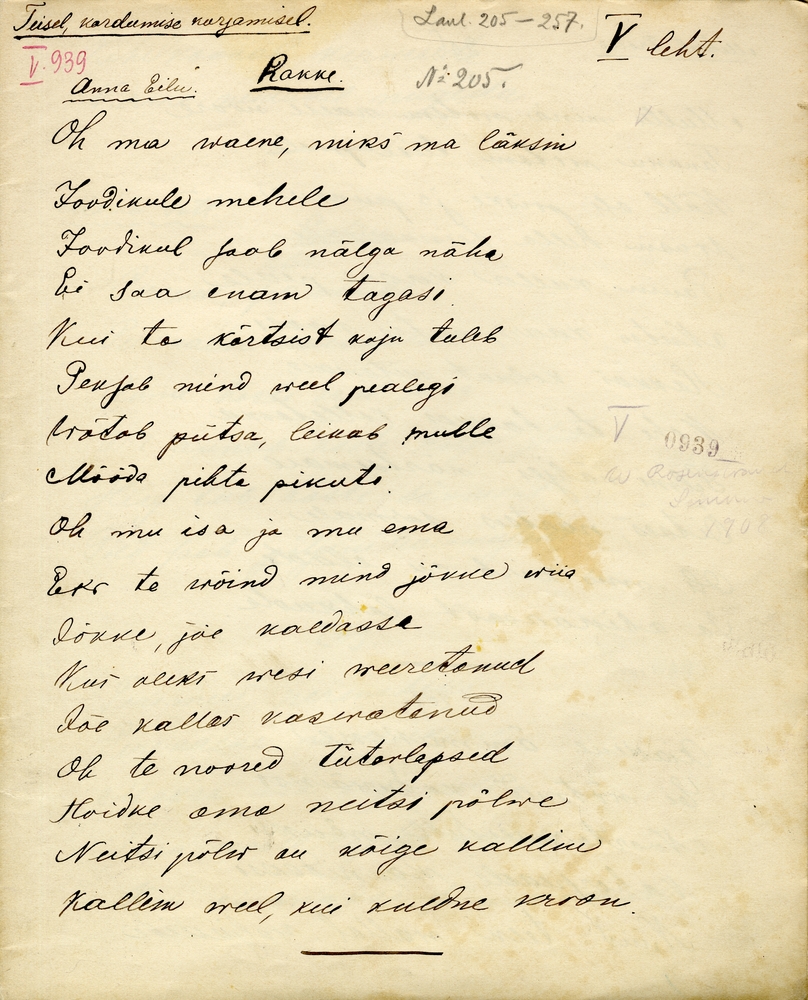 Teisel, kordamise korjamisel.
Laul. 205 – 257.
V leht.
V. 939
Anna Eilu.
Rakke.
№ 205.
Oh ma waene, miks ma läksin
Joodikule mehele
Joodikul saab nälga näha
Ei saa enam tagasi
Kui ta kõrtsist koju tuleb
Peksab mind weel pealegi
Wõtab piitsa, leikab mulle
Mööda pihta pikuti
Oh mu isa ja mu ema
Eks te wõind mind jõkke wiia
Jõkke, jõe kaldasse
Kus oleks wesi weeretanud
Jõe kallas kaswatanud
Oh te noored tütarlapsed
Hoidke oma neitsi põlwe
Neitsi põlw on kõige kallim
Kallim weel, kui kuldne kroon.
V 0939